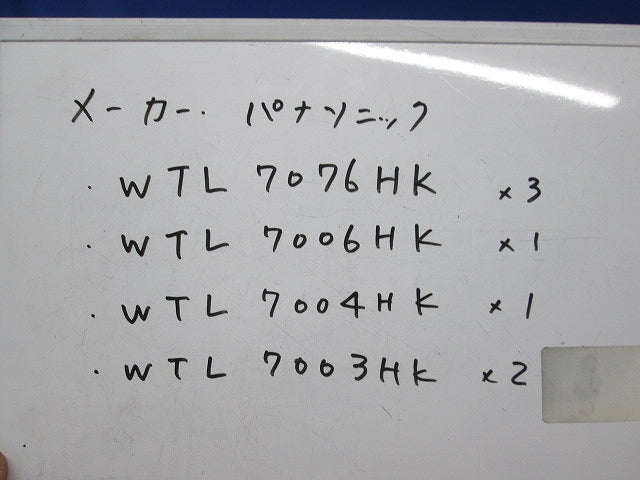 メーカー. パナソニック
・WTL 7076HK ×3
・WTL 7006HK ×1
・WTL 7004HK ×1
・WTL 7003HK ×2